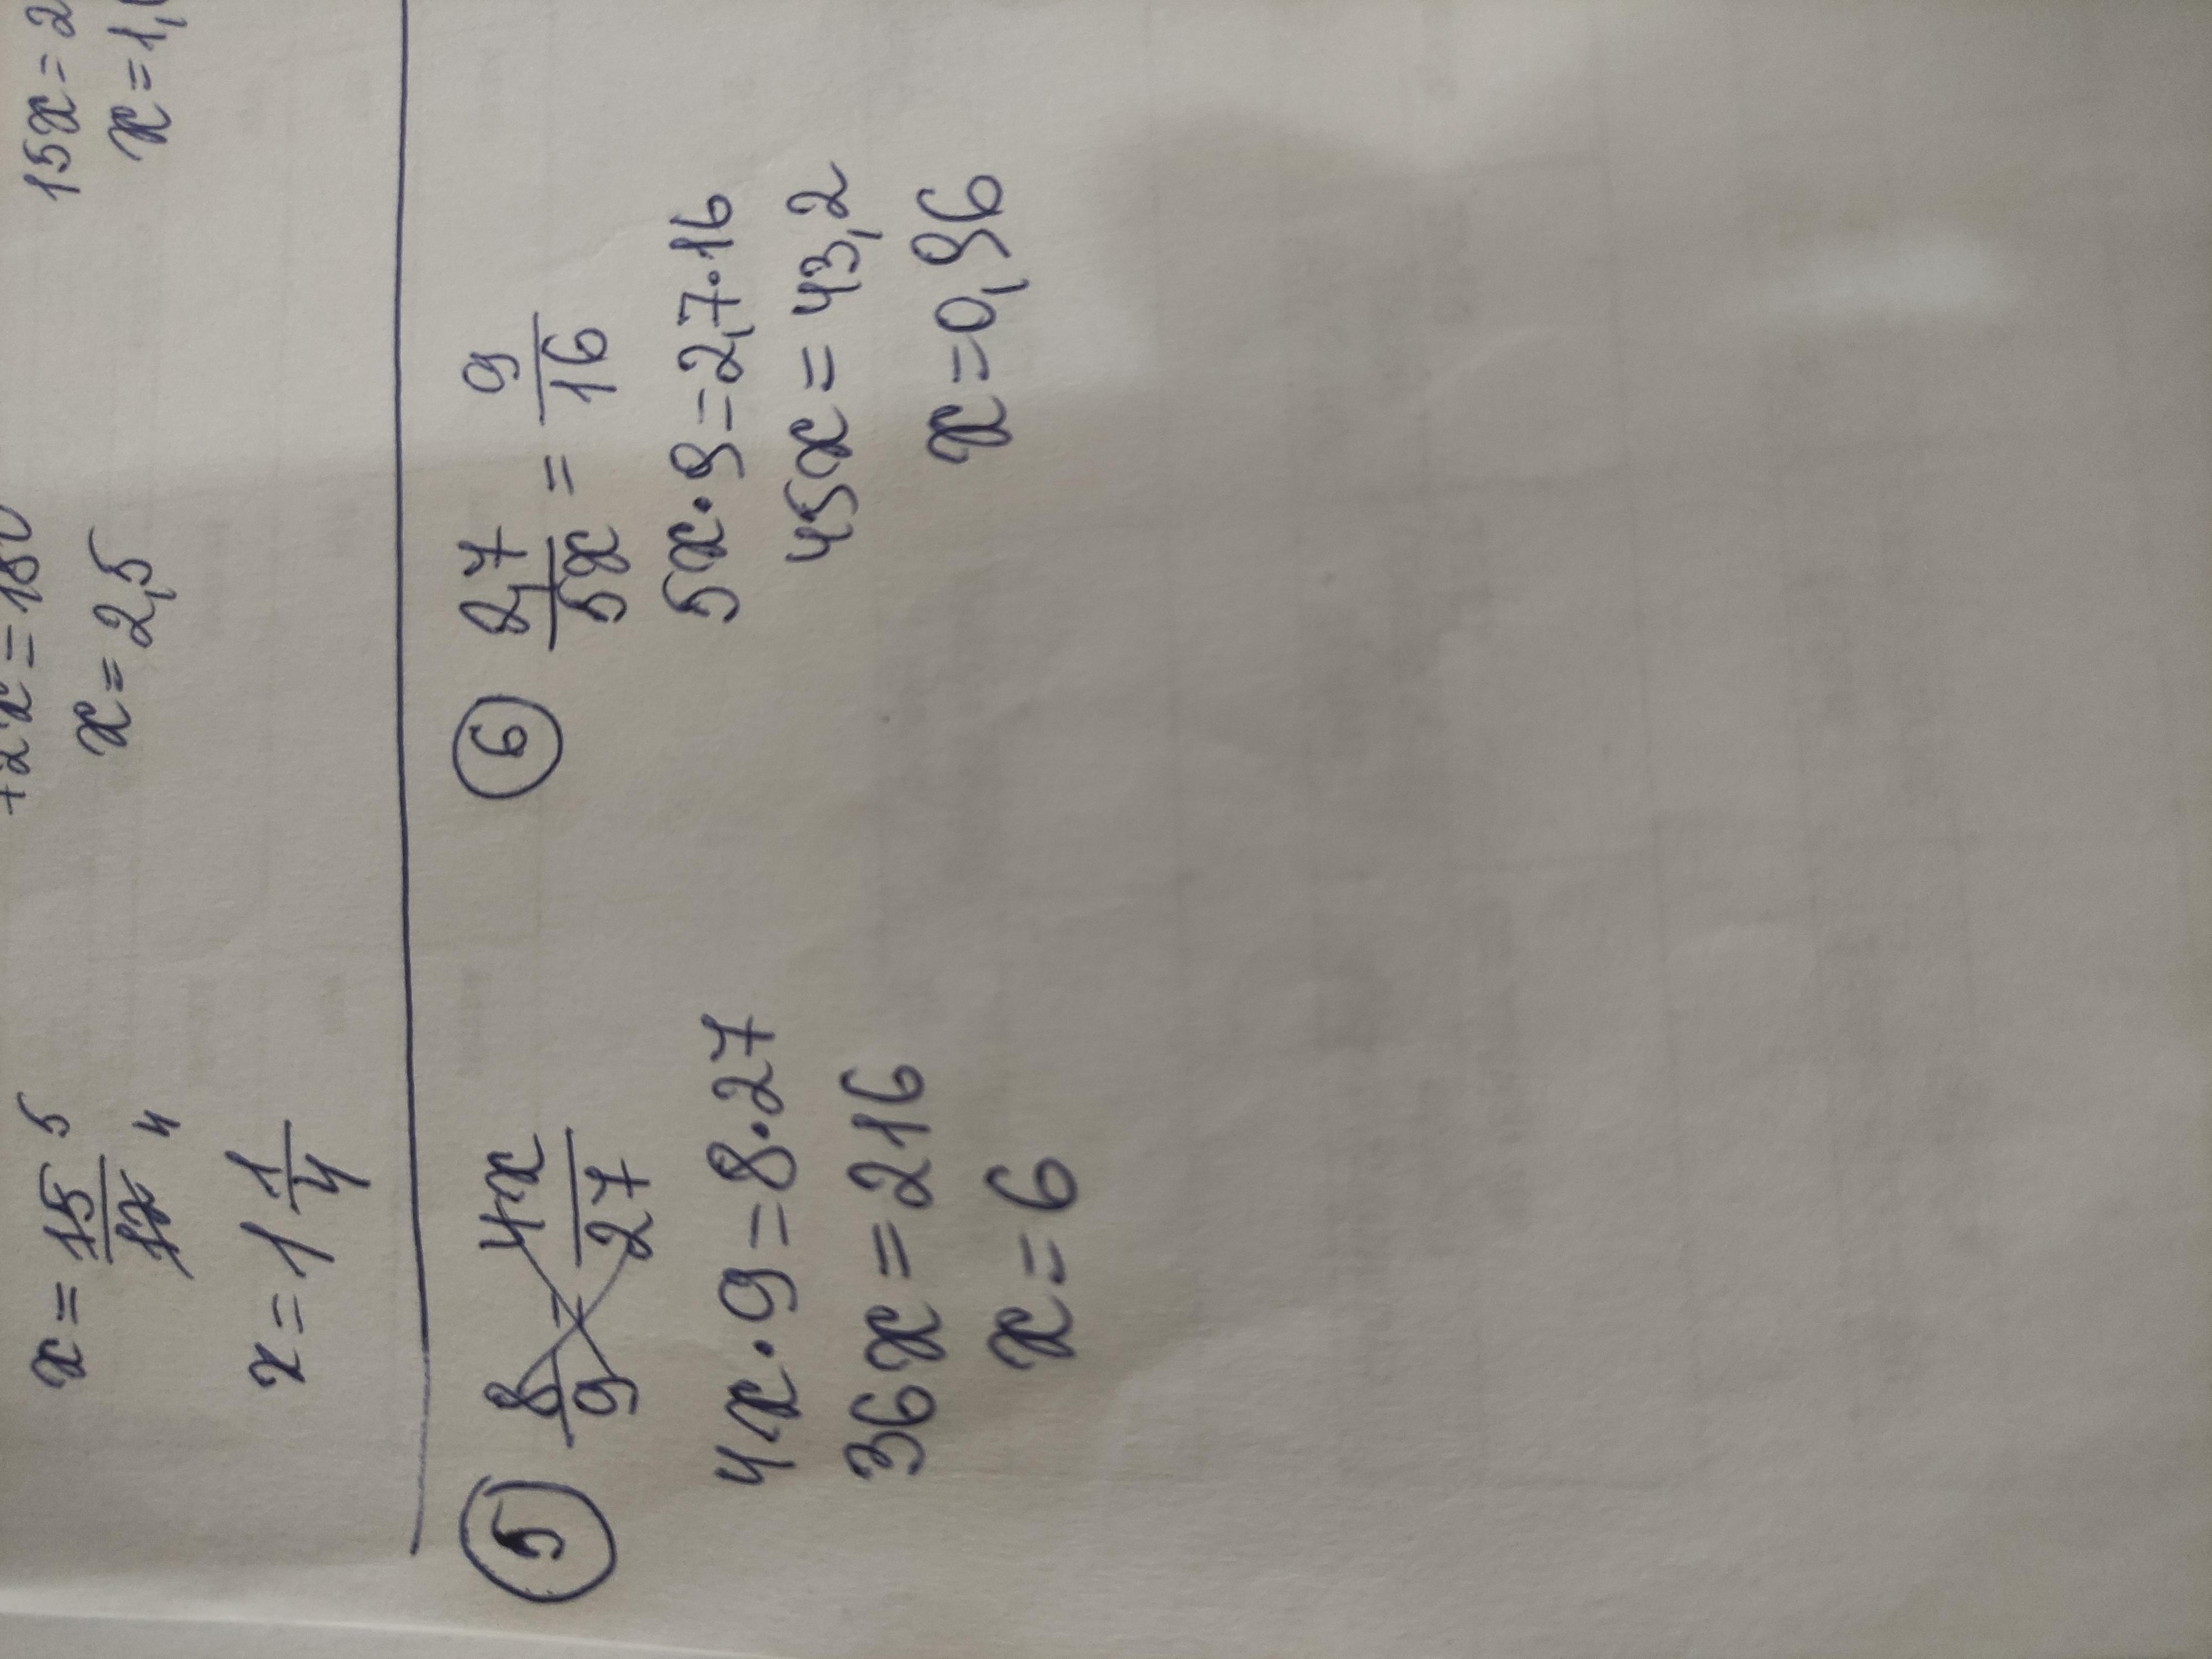 x = 15/12 5 4
x = 1 1/4
x = 2,5
15x = 2
x = 1,
⑤ 8/9 = 4x/27
4x · 9 = 8 · 27
36x = 216
x = 6
⑥ 2,7/5x = 9/16
5x · 9 = 2,7 · 16
45x = 43,2
x = 0,96